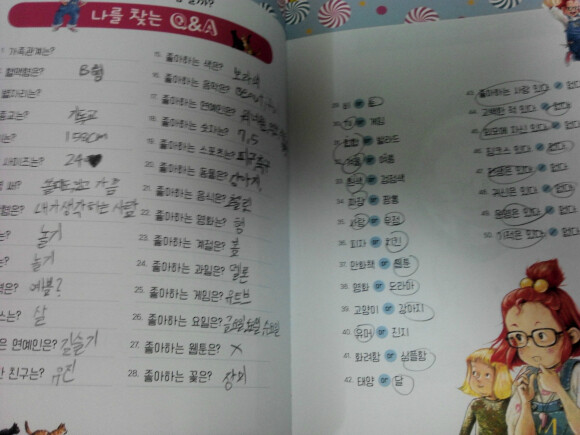 나를 찾는 Q&A
가족관계는?
혈액형은? B형
별자리는?
종교는? 기독교
는? 155cm
사이즈는? 24
내가 생각하는 사람
는? 놀기
는? 놀기
은? 예쁨?
스는? 살
은 연예인은? 김슬기
한 친구는? 유진
15. 좋아하는 색은? 보라색
16. 좋아하는 음악은?
17. 좋아하는 연예인은?
18. 좋아하는 숫자는? 7, 5
19. 좋아하는 스포츠는? 피구
20. 좋아하는 동물은? 강아지
21. 좋아하는 음식은?
22. 좋아하는 영화는?
23. 좋아하는 계절은? 봄
24. 좋아하는 과일은? 멜론
25. 좋아하는 게임은?
26. 좋아하는 요일은?
27. 좋아하는 웹툰은? X
28. 좋아하는 꽃은? 장미
29. 비 or 눈
30. or 게임
31. 힙합 or 발라드
32. 겨울 or 여름
33. 흰색 or 검정색
34. 짜장 or 짬뽕
35. 사랑 or 우정
36. 피자 or 치킨
37. 만화책 or 웹툰
38. 영화 or 드라마
39. 고양이 or 강아지
40. 유머 or 진지
41. 화려함 or 심플함
42. 태양 or 달
43. 좋아하는 사람 있다 or 없다
44. 고백한 적 있다 or 없다
45. 외모에 자신 있다 or 없다
46. 있다 or 없다
47. 있다 or 없다
48. 귀신은 있다 or 없다
49. 운명은 있다 or 없다
50. 기적은 있다 or 없다